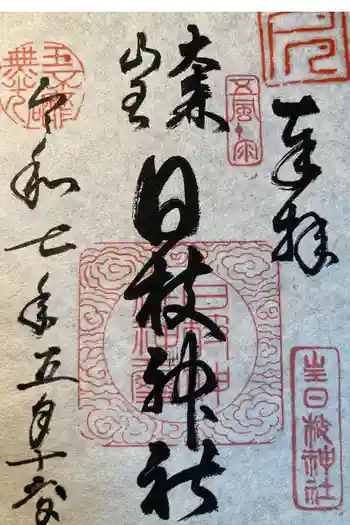 奉拝
大森
山王
日枝神社
令和七年五月十
五風十雨
山王日枝神社